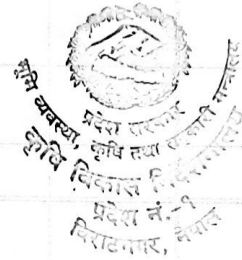 प्रदेश सरकार
भूमि व्यवस्था, कृषि तथा सहकारी मन्त्रालय
कृषि विकास निर्देशनालय
प्रदेश नं. १
विराटनगर, नेपाल